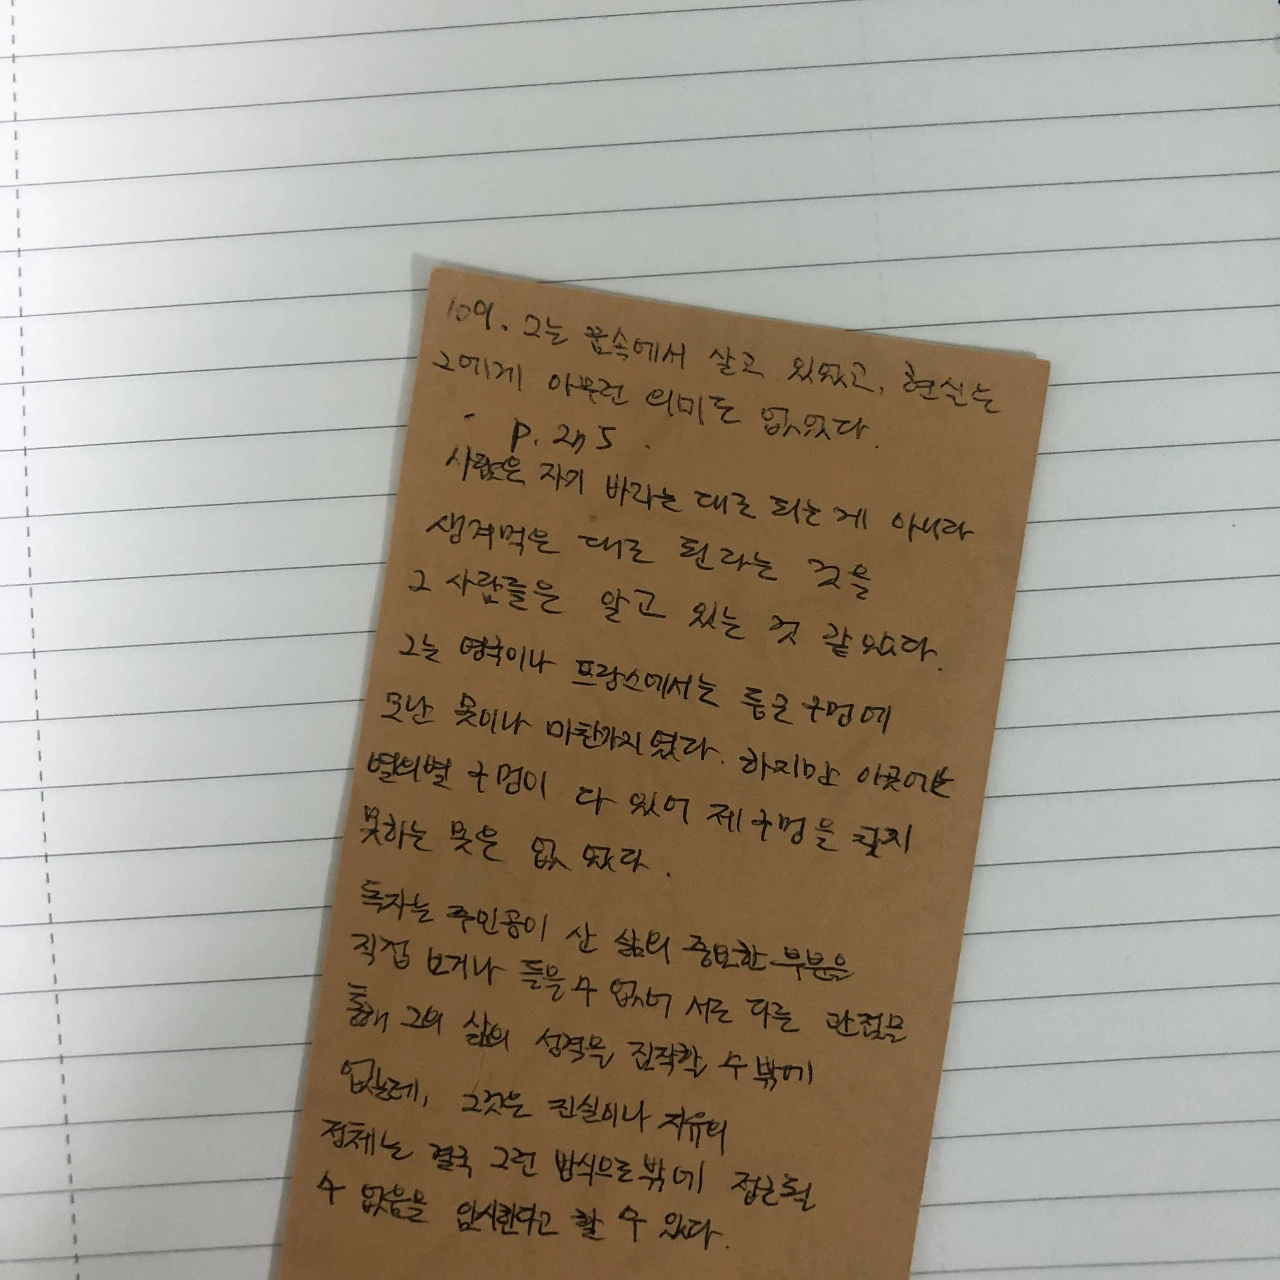 109. 그는 꿈속에서 살고 있었고, 현실는
그에게 아무런 의미도 없었다.
p. 275.
사람은 자기 바라는 대로 되는게 아니라
생겨먹은 대로 된다라는 것을
그 사람들은 알고 있는 것 같았다.
그는 영국이나 프랑스에서는 둥근 구멍에
모난 못이나 마찬가지였다. 하지만 이곳에는
별의별 구멍이 다 있어 제 구멍을 찾지
못하는 못은 없었다.
독자는 주인공이 산 삶의 중요한 부분을
직접 보거나 들을 수 없어 서로 다른 관점을
통해 그의 삶의 성격을 짐작할 수 밖에
없는데, 그것은 진실이나 자유의
정체는 결국 그런 방식으로밖에 접근될
수 없음을 암시한다고 할 수 있다.